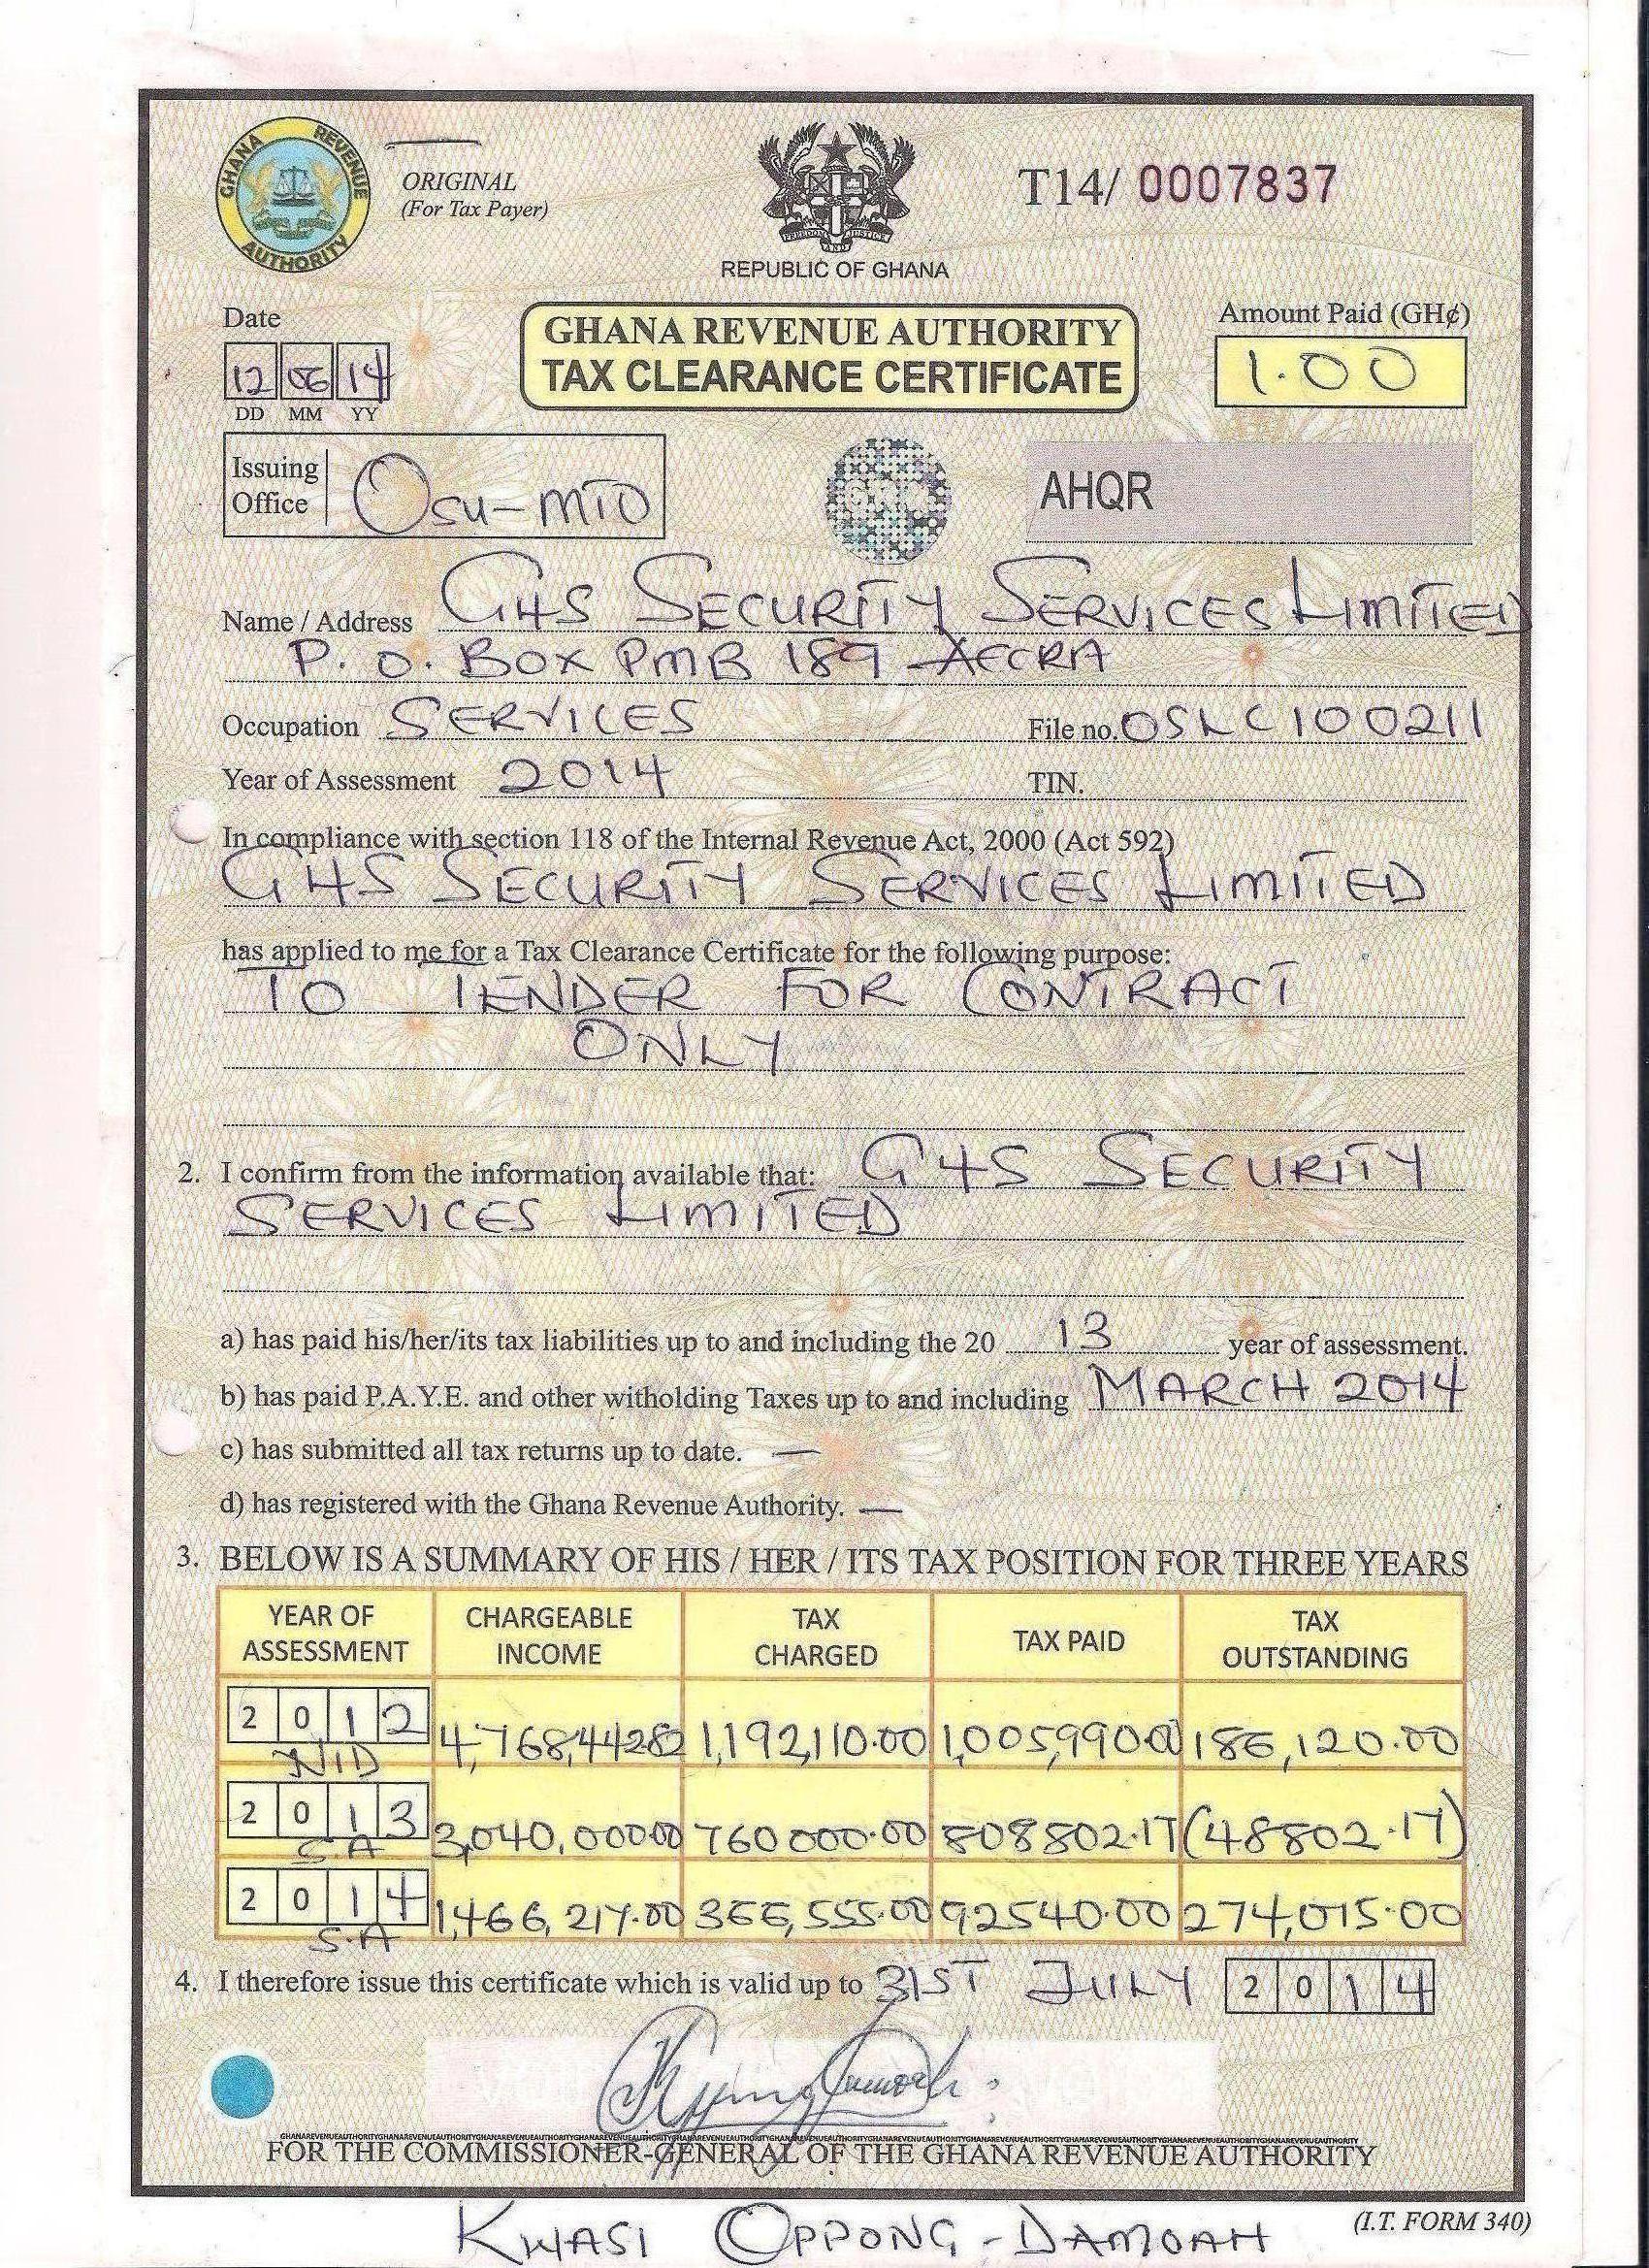 GHANA REVENUE AUTHORITY
ORIGINAL
(For Tax Payer)
FREEDOM AND JUSTICE
REPUBLIC OF GHANA
T14/ 0007837
Date
12 06 14
DD MM YY
GHANA REVENUE AUTHORITY
TAX CLEARANCE CERTIFICATE
Amount Paid (GH¢)
1.00
Issuing Office OSU-MTO
AHQR
Name / Address G4S SECURITY SERVICES LIMITED
P. O. BOX PMB 189 ACCRA
Occupation SERVICES File no. OSLC100211
Year of Assessment 2014 TIN.
In compliance with section 118 of the Internal Revenue Act, 2000 (Act 592)
G4S SECURITY SERVICES LIMITED
has applied to me for a Tax Clearance Certificate for the following purpose:
TO TENDER FOR CONTRACT
ONLY
2. I confirm from the information available that: G4S SECURITY
SERVICES LIMITED
a) has paid his/her/its tax liabilities up to and including the 20 13 year of assessment.
b) has paid P.A.Y.E. and other witholding Taxes up to and including MARCH 2014
c) has submitted all tax returns up to date. —
d) has registered with the Ghana Revenue Authority. —
3. BELOW IS A SUMMARY OF HIS / HER / ITS TAX POSITION FOR THREE YEARS
YEAR OF ASSESSMENT CHARGEABLE INCOME TAX CHARGED TAX PAID TAX OUTSTANDING
2012 4,768,442.82 1,192,110.00 1,005,990.00 186,120.00
2013 3,040,000.00 760000.00 808802.17 (48802.17)
S.A
2014 1,466,217.00 366,555.00 92540.00 274,015.00
S.A
4. I therefore issue this certificate which is valid up to 31ST JULY 2014
FOR THE COMMISSIONER-GENERAL OF THE GHANA REVENUE AUTHORITY
KWASI OPPONG-DAMOAH
(I.T. FORM 340)